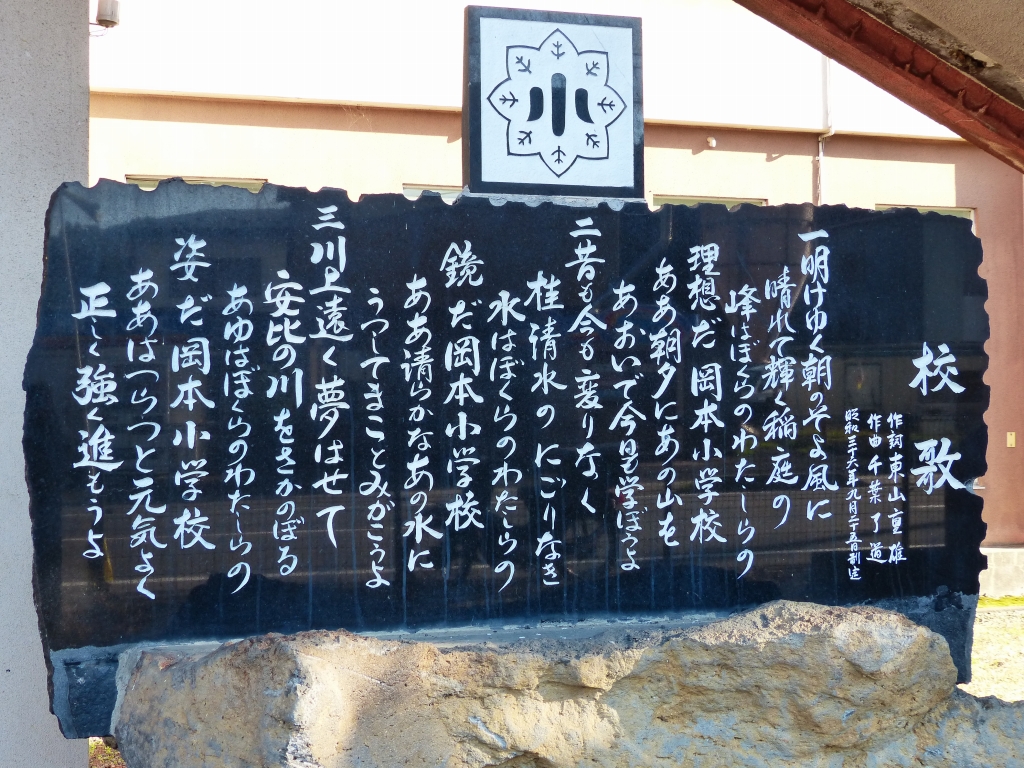 小
校歌
作詞 東山重雄
作曲 千葉了道
昭和三十六年九月二十五日制定
一 明けゆく朝のそよ風に
晴れて輝く稲庭の
峰はぼくらのわたしらの
理想だ岡本小学校
ああ朝夕にあの山を
あおいで今日も学ぼうよ
二 昔も今も変りなく
桂清水のにごりなき
水はぼくらのわたしらの
鏡だ岡本小学校
ああ清らかなあの水に
うつしてまことみがこうよ
三 川上遠く夢はせて
安比の川をさかのぼる
あゆはぼくらのわたしらの
姿だ岡本小学校
ああはつらつと元気よく
正しく強く進もうよ